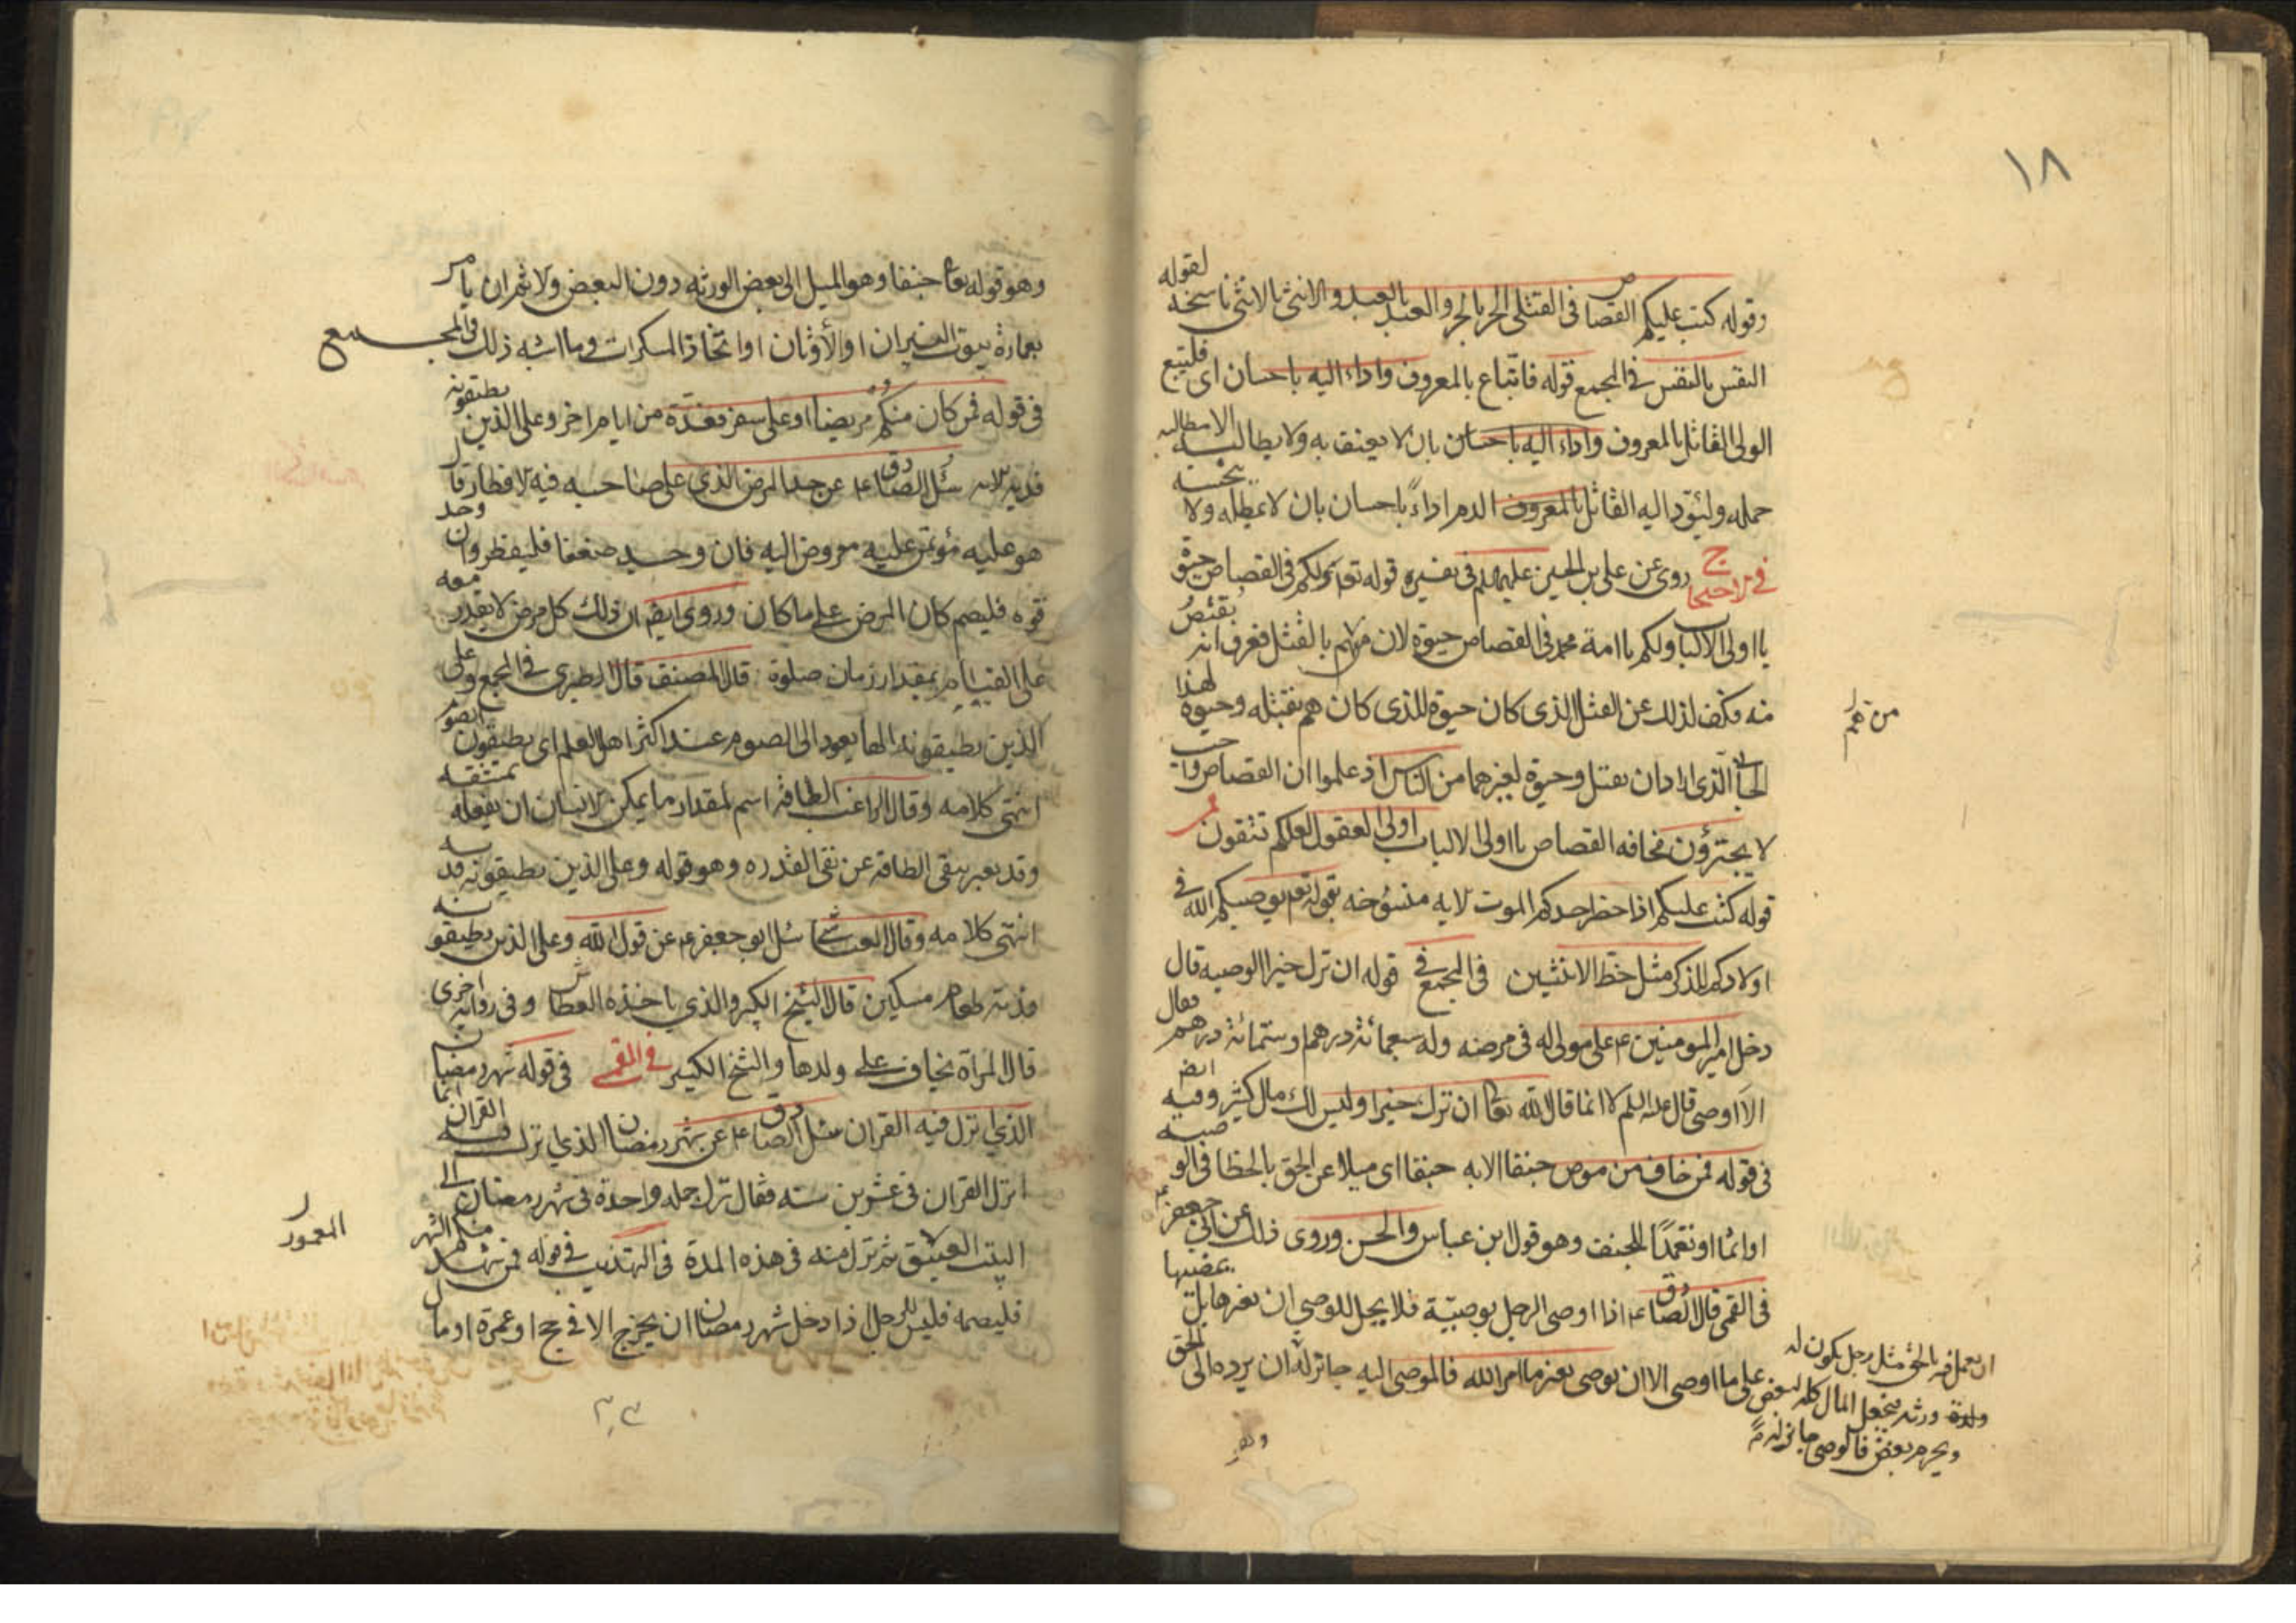 ١٨
وقوله كتب عليكم القصاص فى القتلى الحر بالحر والعبد بالعبد والانثى بالانثى ناسخه لقوله
النفس بالنفس فى المجمع قوله فاتباع بالمعروف واداء اليه باحسان اى فليتبع
الولى القاتل بالمعروف واداء اليه باحسان بان لا يعنف به ولا يطالبه الا مطالبه
حمله وليؤد اليه القاتل بالمعروف الدم اداءً باحسان بان لا يمطله ولا يبخسه
فى الاحتجاج روى عن على بن الحسين عليهما السلم فى تفسيره قوله تعم ولكم فى القصاص حيوة
يا اولى الالباب ولكم يا امة محمد فى القصاص حيوة لان من هم بالقتل فعرف انه يقتص
منه فكف لذلك عن القتل الذى كان حيوة للذى كان هم بقتله وحيوة لهذا
الجانى الذى اراد ان يقتل وحيوة لغيرهما من الناس اذ علموا ان القصاص واجب
لا يجترؤن مخافه القصاص يا اولى الالباب اولى العقول لعلكم تتقون
قوله كتب عليكم اذا حضر احدكم الموت لايه منسوخه بقوله تعم يوصيكم الله فى
اولادكم للذكر مثل حظ الانثيين فى المجمع فى قوله ان ترك خيرا الوصيه قال
دخل امير المومنين ع على مولى له فى مرضه وله سبعمائة درهم او ستمائة درهم فقال
الا اوصى قال عليه السلم لا انما قال الله تعا ان ترك خيرا وليس لك مال كثير وفيه ايضا
فى قوله فمن خاف من موص جنفا الايه جنفا اى ميلا عن الحق بالخطا فى الوصية
او اثما او تعمدًا للجنف وهو قول ابن عباس والحسن وروى ذلك عن ابى جعفر ع
فى القمى قال الصادق ع اذا اوصى الرجل بوصيّة فلا يحل للوصى ان يغيرها بل يمضيها
على ما اوصى الا ان يوصى بغير ما امر الله فالموصى اليه جائز له ان يرده الى الحق
من هم
ان يعمل فيه بالحق مثل رجل يكون له
ورثه فيجعل المال كله لبعض
ويحرم بعض فالوصى جائز له
وهو
وهو قوله تعا جنفا وهو الميل الى بعض الورثه دون البعض والاثم ان يامر
بعمارة بيوت النيران او الأوثان او اتخاذ المسكرات وما اشبه ذلك فى المجمع
فى قوله فمن كان منكم مريضا او على سفر فعدة من ايام اخر وعلى الذين يطيقونه
فدية لايه سئل الصادق ع عن حد المرض الذى على صاحبه فيه لافطار قال
هو عليه مؤتمن عليه مفوض اليه فان وجد ضعفا فليفطر وان وجد
قوه فليصم كان المرض على ما كان وروى ايضا ان ذلك كل مرض لا يقدر معه
على القيام بمقدار زمان صلوة قال المصنف قال الطبرسى فى المجمع وعلى
الذين يطيقونه الها يعود الى الصوم عند اكثر اهل العلم اى يطيقون الصوم
انتهى كلامه وقال الراغب الطاقة اسم لمقدار ما يمكن لانسان ان يفعله بمشقه
وقد يعبر بنفى الطاقه عن نفى القدره وهو قوله وعلى الذين يطيقونه فديه
انتهى كلامه وقال العياشى سئل ابو جعفر ع عن قول الله وعلى الذين يطيقونه
فدية طعام مسكين قال الشيخ الكبير والذى ياخذه العطاش وفى رواية اخرى
قال المراة تخاف على ولدها والشيخ الكبير فى القمى فى قوله شهر رمضان
الذى انزل فيه القران سئل الصادق ع عن شهر رمضان الذى نزل فيه القران انما
انزل القران فى عشرين سنه فقال نزل جمله واحدة فى شهر رمضان الى
البيت المعمور ثم نزل منه فى هذه المدة فى التهذيب فى قوله فمن شهد منكم الشهر
فليصمه فليس للرجل اذا دخل شهر رمضان ان يخرج الا فى حج او عمرة او مال
المعمور